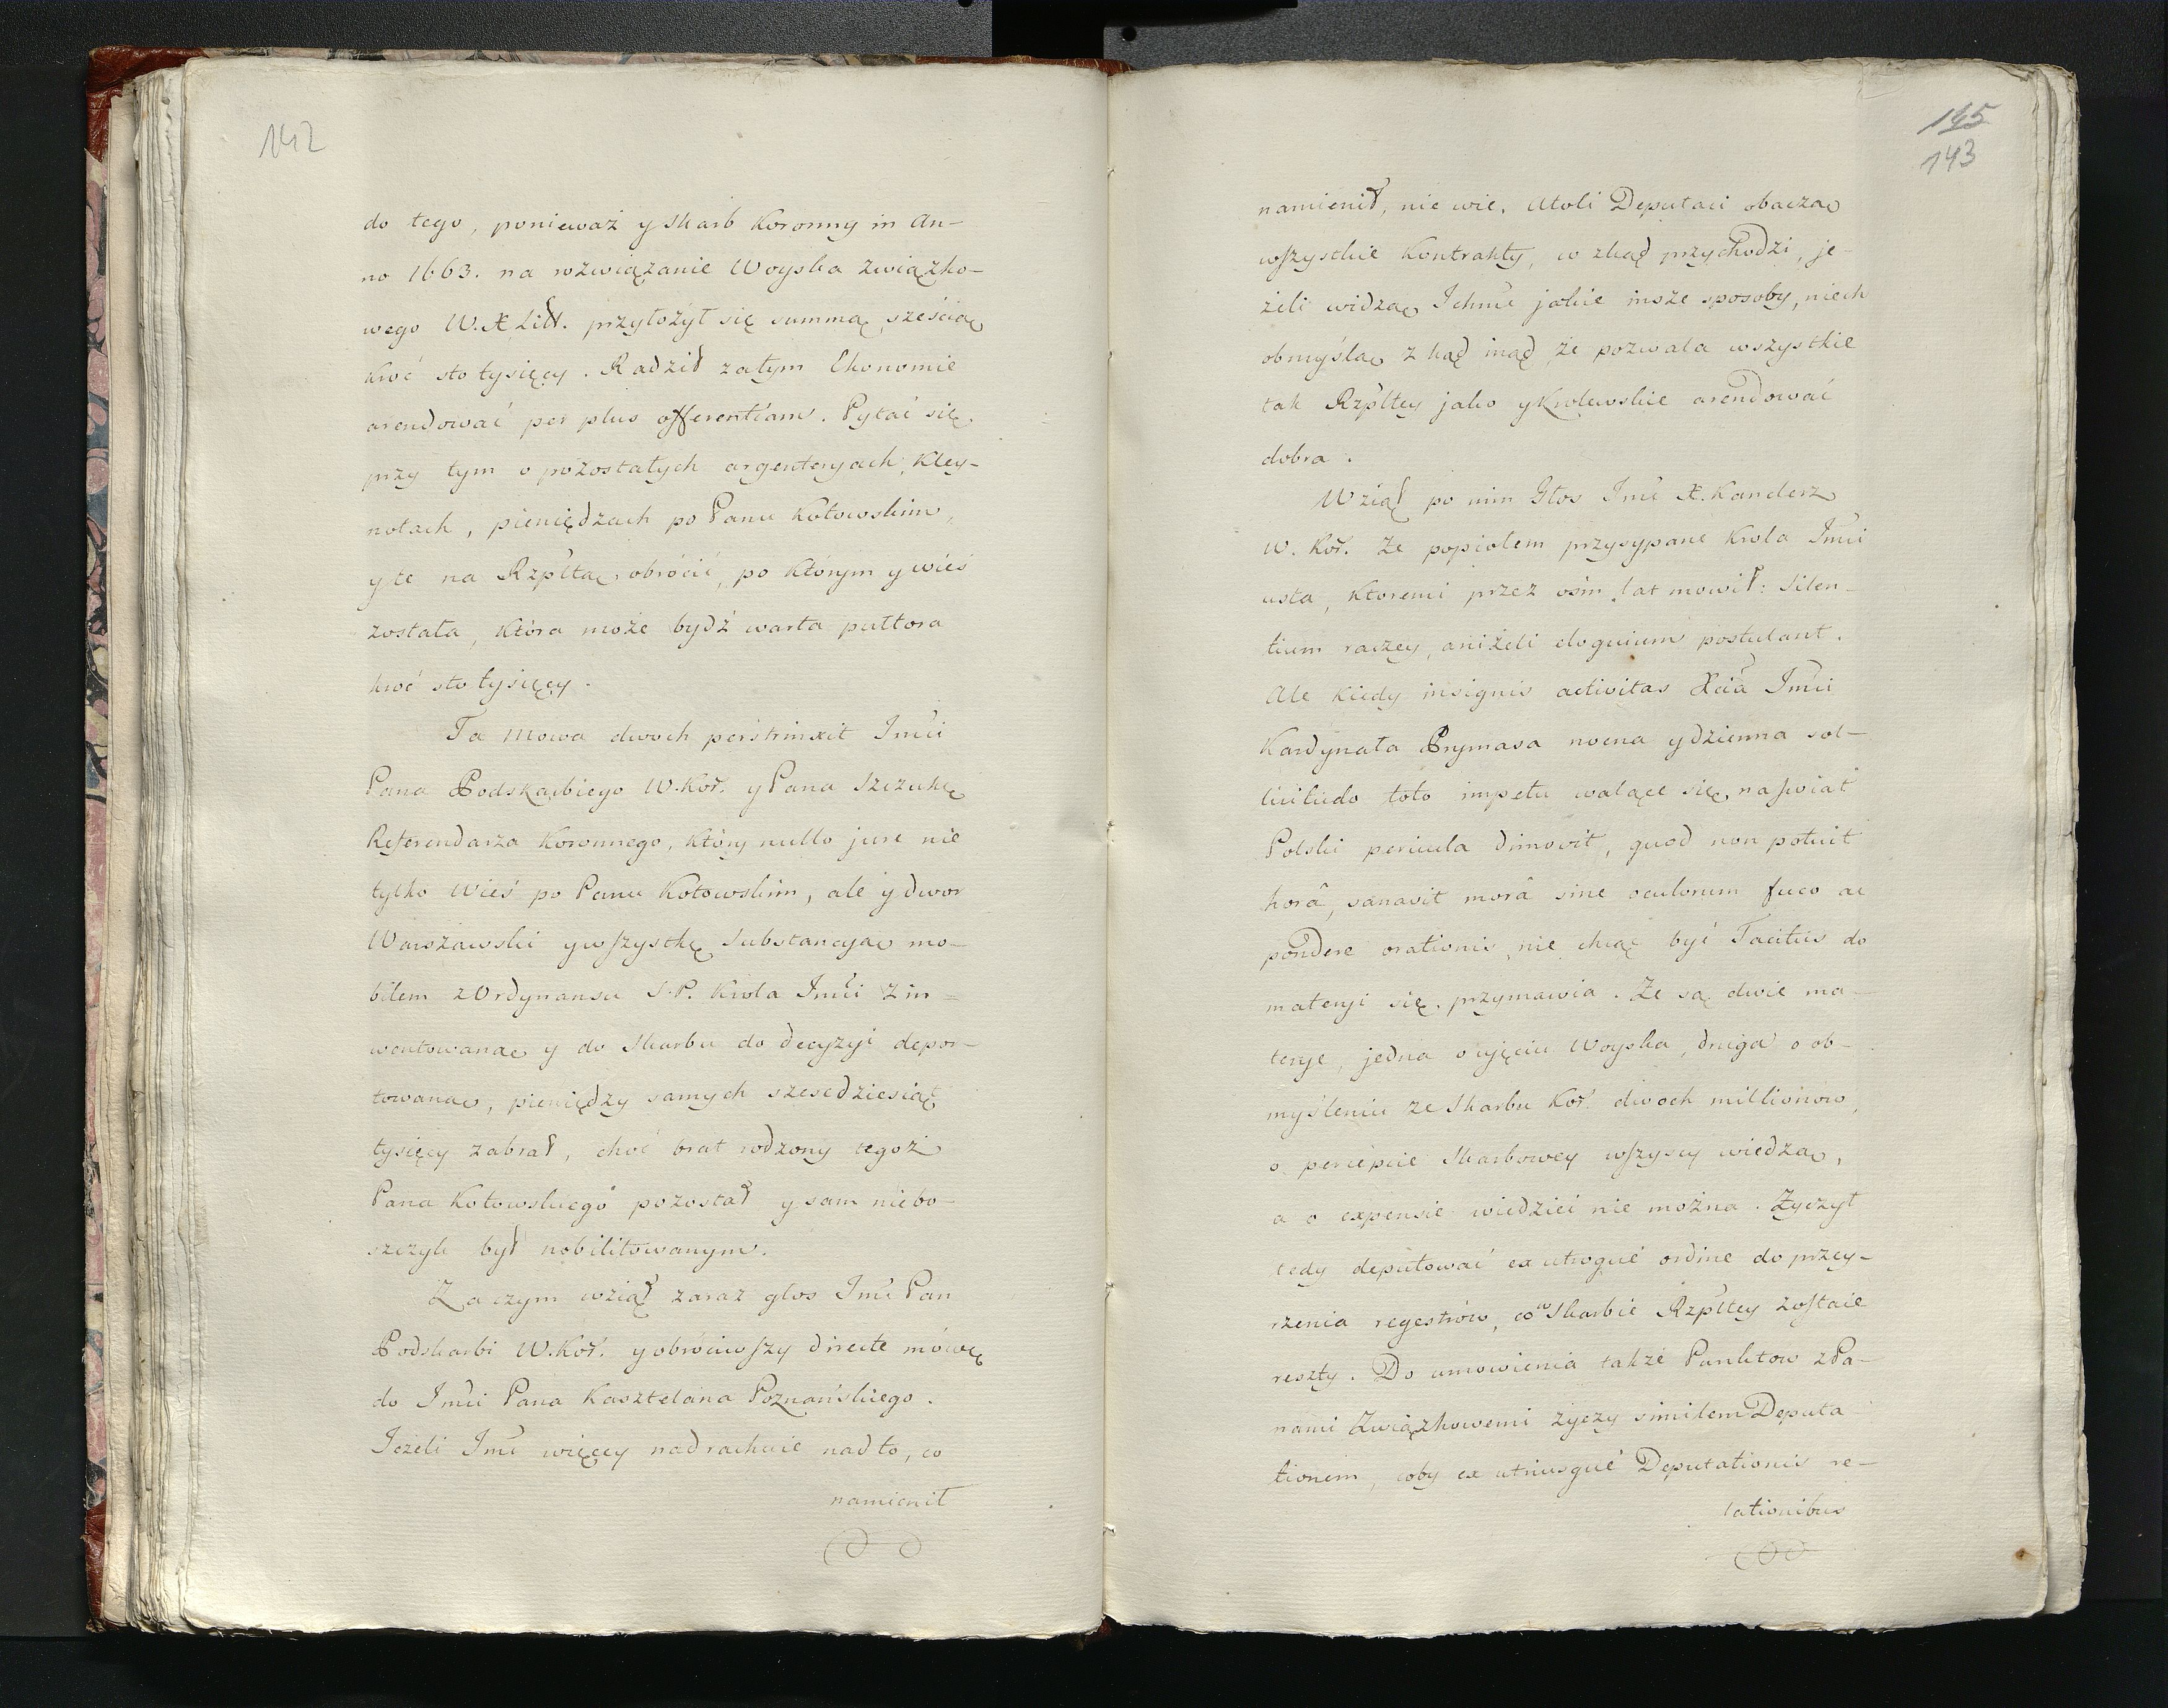 142
do tego, ponieważ y Skarb Koronny in An-
no 1663. na rozwiązanie Woyska związko-
wego W. X Litt. przyłożył się summą sześcią
kroć sto tysięcy. Radził zatym Ekonomie
arendować per plus offerentiam. Pytać się
przy tym o pozostałych argenteryach, Kley-
notach, pieniędzach po Panu Kotowskim,
y te na Rzpltą obrócić, po którym y wieś
została, która może bydź warta pułtora
kroć sto tysięcy.
Ta Mowa dwoch perstrinxit Jmci
Pana Podskarbiego W. Kor. y Pana Szczukę
Referendarza Koronnego, który nullo jure nie
tylko Wieś po Panu Kotowskim, ale y dwor
Warszawski y wszystkę Substancyją mo-
bilem z Ordynansu S. P. Krola Jmci zin=
wentowaną y do Skarbu do decyzyi depor-
towaną, pieniędzy samych szescdziesiąt
tysięcy zabrał, choć brat rodzony tegoż
Pana Kotowskiego pozostał y sam niebo-
szczyk był nobilitowanym.
Zaczym wziął zaraz głos Jmć Pan
Podskarbi W. Kor. y obróciwszy directe mówę
do Jmci Pana Kasztelana Poznańskiego.
Jeżeli Jmć więcey nadrachuie nad to, co
namienił
145
143
namienił, nie wie. Atoli Deputaci obaczą
wszystkie Kontrakty, w zkąd przychodzi, je-
żeli widzą Ichmć jakie insze sposoby, niech
obmyślą z kąd inąd, że pozwala wszystkie
tak Rzpltey jako y Krolewskie arendować
dobra.
Wziął po nim Głos Jmć X. Kanclerz
W. Kor. Ze popiołem przysypane Krola Jmci
usta, ktoremi przez ośm lat mowił: Silen-
tium raczey, aniżeli eloquium postulant.
Ale kiedy insignis activitas Xcia Jmci
Kardynała Prymasa nocna y dzienna sol-
licitudo toto impetu walące się na świat
Polski pericula dimovit, quod non potuit
horâ, sanavit morâ sine oculorum fuco ac
pondere orationis, nie chcąc być Tacitus do
materyi się przymawia. Ze są dwie ma-
terye, jedna o ujęciu Woyska, druga o ob-
myśleniu ze Skarbu Kor. dwoch millionow,
o percepcie Skarbowey wszyscy wiedzą,
a o expensie wiedzieć nie można. Zyczył
tedy deputować ex utroque ordine do przey-
rzenia regestrów, co w Skarbie Rzpltey zostaie
reszty. Do umowienia także Punktow z Pa-
nami Związkowemi życzy similem Deputa
tionem, coby ex utriusque Deputationis re-
lationibus